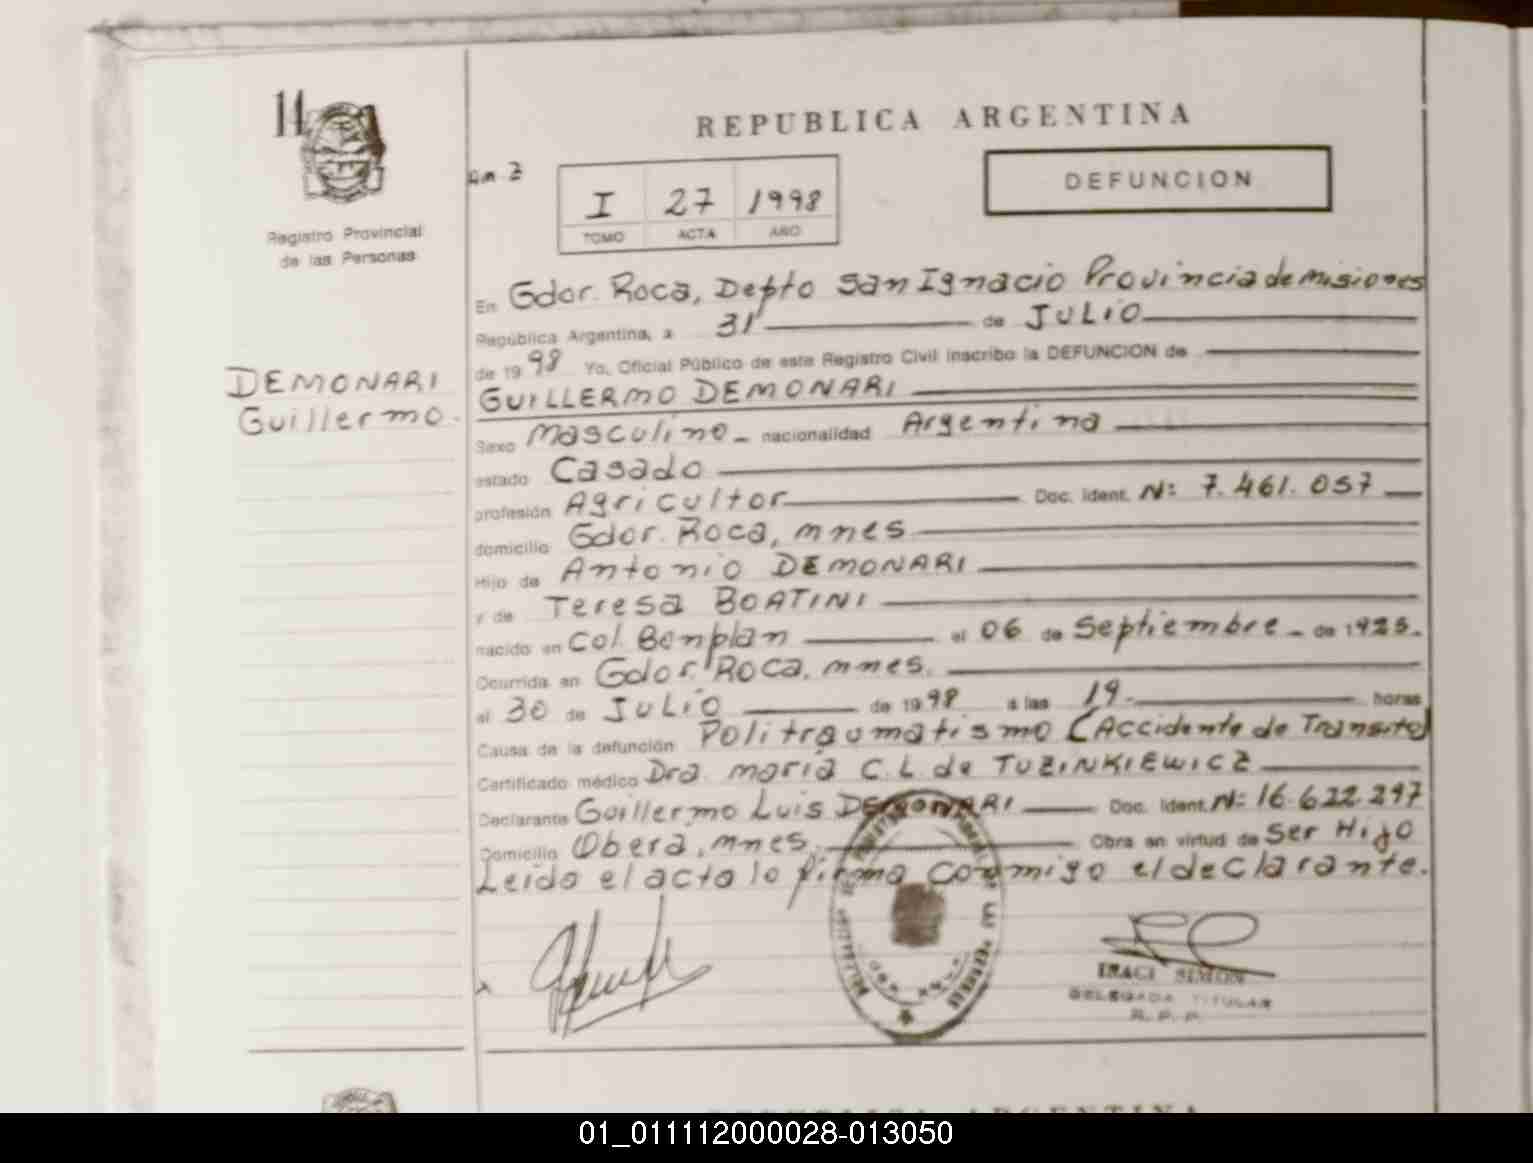 14
REPUBLICA ARGENTINA
DEFUNCION
I 27 1998
TOMO ACTA AÑO
Registro Provincial
de las Personas
En Gdor. Roca, Depto San Ignacio Provincia de Misiones
República Argentina, a 31 de JULIO
de 1998 Yo, Oficial Público de este Registro Civil inscribo la DEFUNCION de
DEMONARI
Guillermo.
GUILLERMO DEMONARI
Sexo Masculino - nacionalidad Argentina
estado Casado
profesión Agricultor Doc. Ident. Nº: 7.461.057
domicilio Gdor. Roca, mnes
Hijo de Antonio DEMONARI
y de Teresa BOATINI
nacido en Col. Bonplan el 06 de Septiembre - de 1925.
Ocurrida en Gdor. Roca, mnes.
el 30 de JULIO de 1998 a las 19.- horas
Causa de la defunción Politraumatismo (Accidente de Transito)
Certificado médico Dra. maria C.L. de TUZINKIEWICZ
Declarante Guillermo Luis DEMONARI Doc. Ident. Nº: 16.622.297
Domicilio Obera, mnes. Obra en virtud de Ser Hijo
Leido el acta lo firma conmigo el declarante.
IRACI SIMON
DELEGADA TITULAR
R. P. P.
REPUBLICA ARGENTINA
01_011112000028-013050